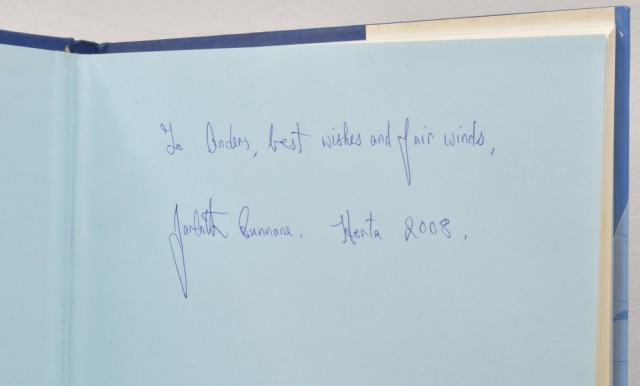 To Anders, best wishes and fair winds,
Jarlath Cunnane. Horta 2008.